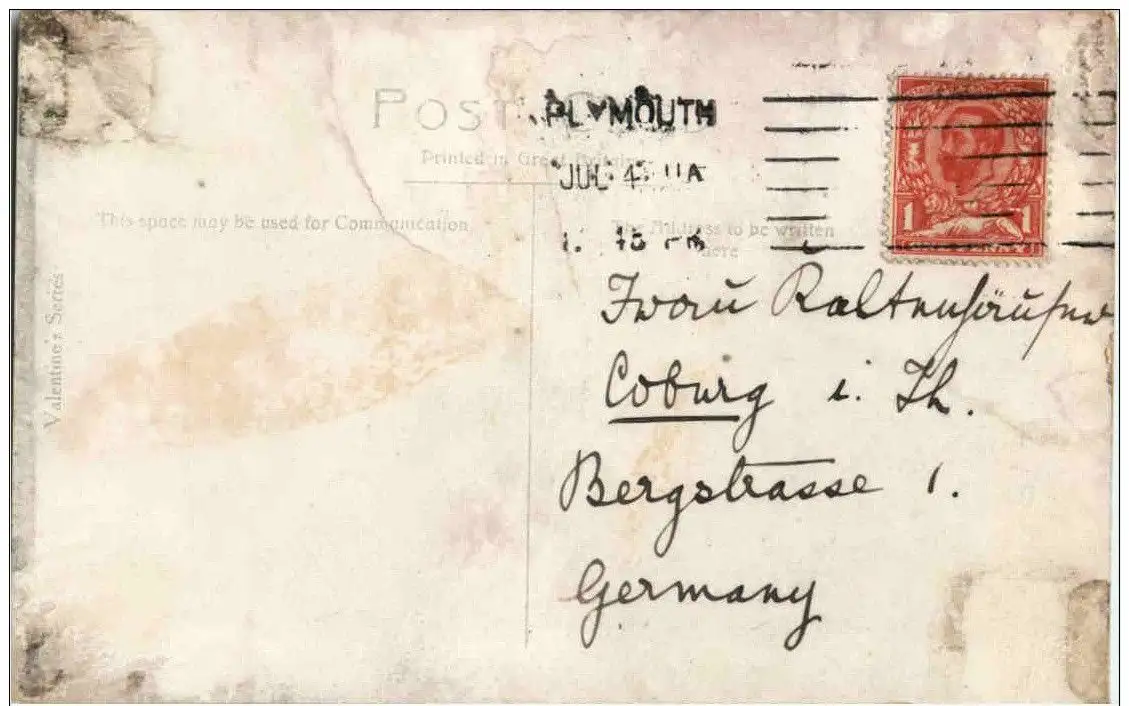 POST
PLYMOUTH
Printed in Great Britain
JUL 4 11A
This space may be used for Communication
The Address to be written
here
45 PM
1 1
Valentine's Series
Frau
Coburg i. Th.
Bergstrasse 1.
Germany